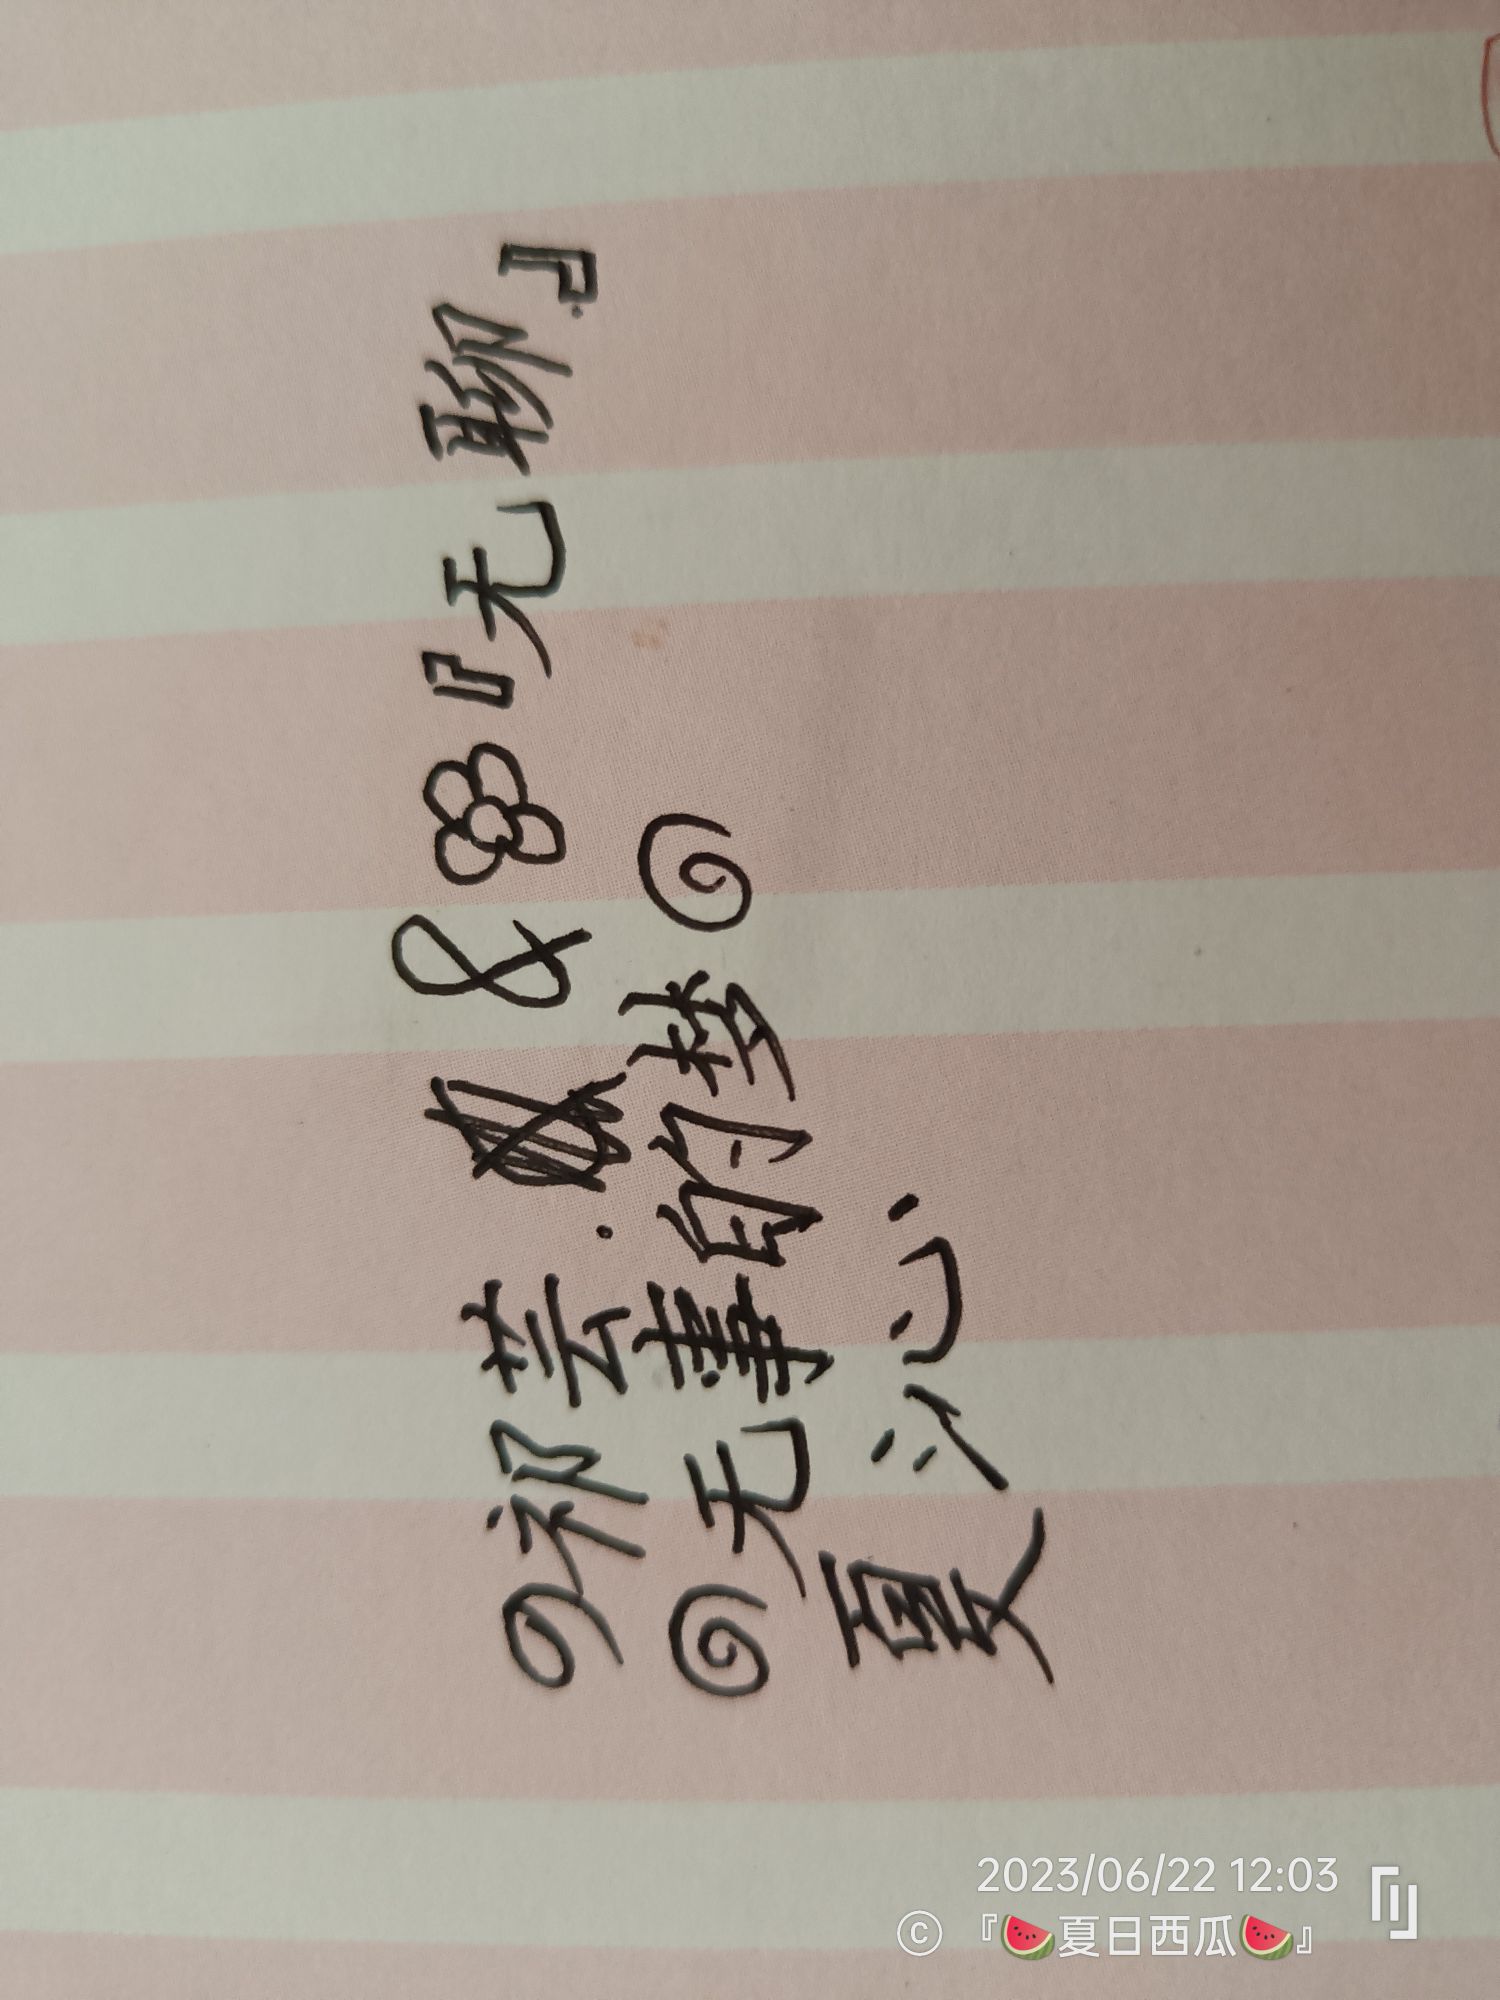 祁芸. & 『无聊』
无事的梦
夏沁
2023/06/22 12:03
© 『🍉夏日西瓜🍉』